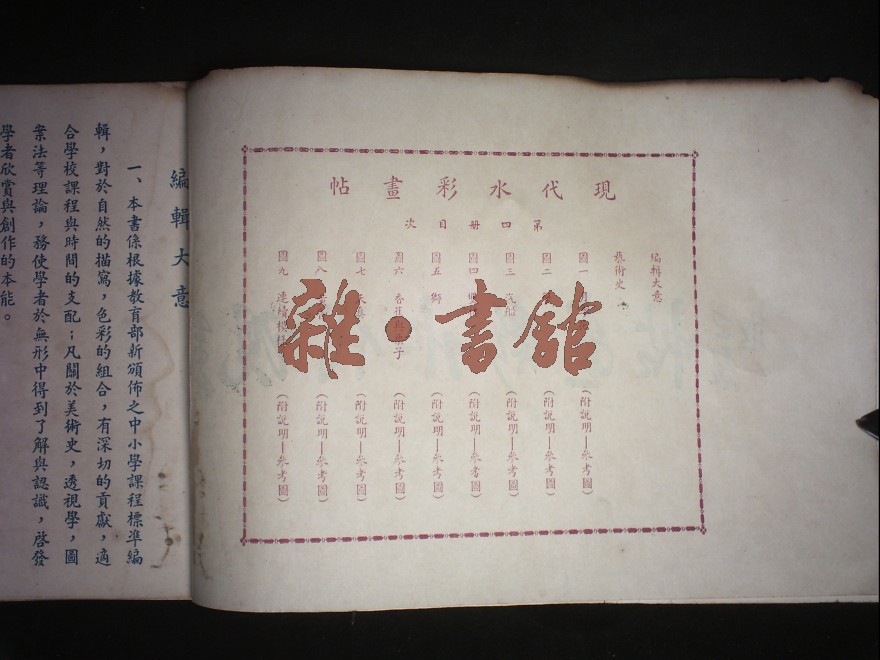 現代水彩畫帖
第四冊目次
編輯大意
藝術史
圖一 (附說明—參考圖)
圖二 (附說明—參考圖)
圖三 汽船 (附說明—參考圖)
圖四 (附說明—參考圖)
圖五 (附說明—參考圖)
圖六 香蕉與栗子 (附說明—參考圖)
圖七 (附說明—參考圖)
圖八 (附說明—參考圖)
圖九 連續模樣 (附說明—參考圖)
雜·書館
編輯大意
一、本書係根據教育部新頒佈之中小學課程標準編
輯,對於自然的描寫,色彩的組合,有深切的貢獻,適
合學校課程與時間的支配;凡關於美術史,透視學,圖
案法等理論,務使學者於無形中得到了解與認識,啓發
學者欣賞與創作的本能。